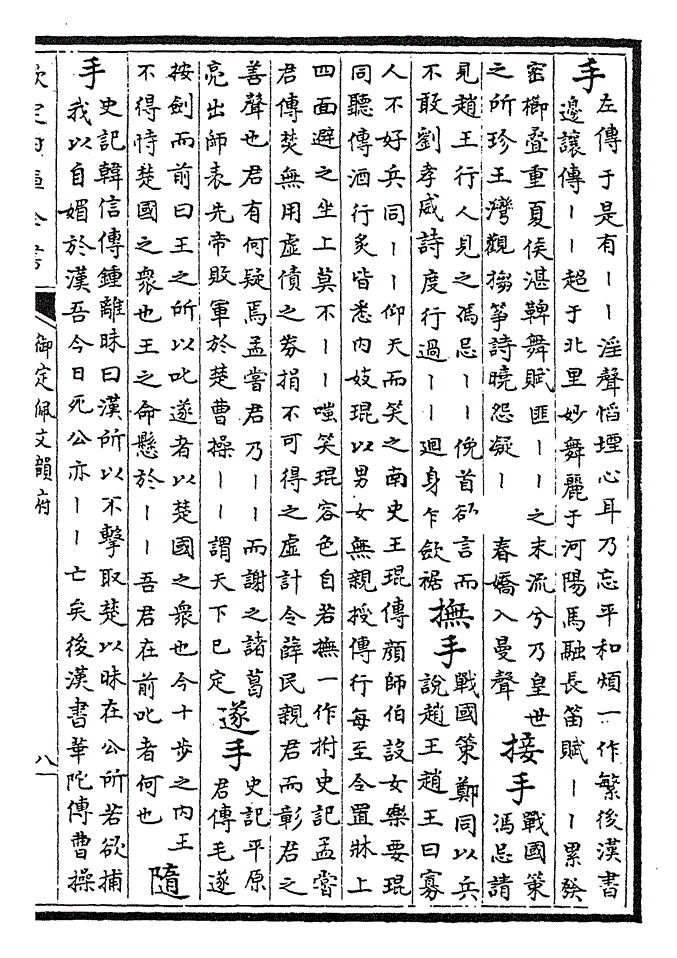 手
左傳于是有丨丨淫聲慆堙心耳乃忘平和煩一作繁後漢書
邊讓傳丨丨超于北里妙舞麗于河陽馬融長笛賦丨丨累發
密櫛疊重夏侯湛鞞舞賦匪丨丨之末流兮乃皇世
之所珍王灣觀搊箏詩曉怨凝丨 春嬌入曼聲
接手
戰國策
馮忌請
見趙王行人見之馮忌丨丨俛首欲言而
不敢劉孝威詩度行過丨丨迴身乍斂裾
撫手
戰國策鄭同以兵
說趙王趙王曰寡
人不好兵同丨丨仰天而笑之南史王琨傳顔師伯設女樂要琨
同聽傳酒行炙皆悉内妓琨以男女無親授傳行每至令置牀上
四面避之坐上莫不丨丨嗤笑琨容色自若撫一作拊史記孟嘗
君傳焚無用虛債之券捐不可得之虛計令薛民親君而彰君之
善聲也君有何疑焉孟嘗君乃丨丨而謝之諸葛
亮出師表先帝敗軍於楚曹操丨丨謂天下已定
遂手
史記平原
君傳毛遂
按劍而前曰王之所以叱遂者以楚國之衆也今十步之内王
不得恃楚國之衆也王之命懸於丨丨吾君在前叱者何也
隨
手
史記韓信傳鍾離昧曰漢所以不擊取楚以昧在公所若欲捕
我以自媚於漢吾今日死公亦丨丨亡矣後漢書華陀傳曹操
欽定四庫全書
御定佩文韻府
八